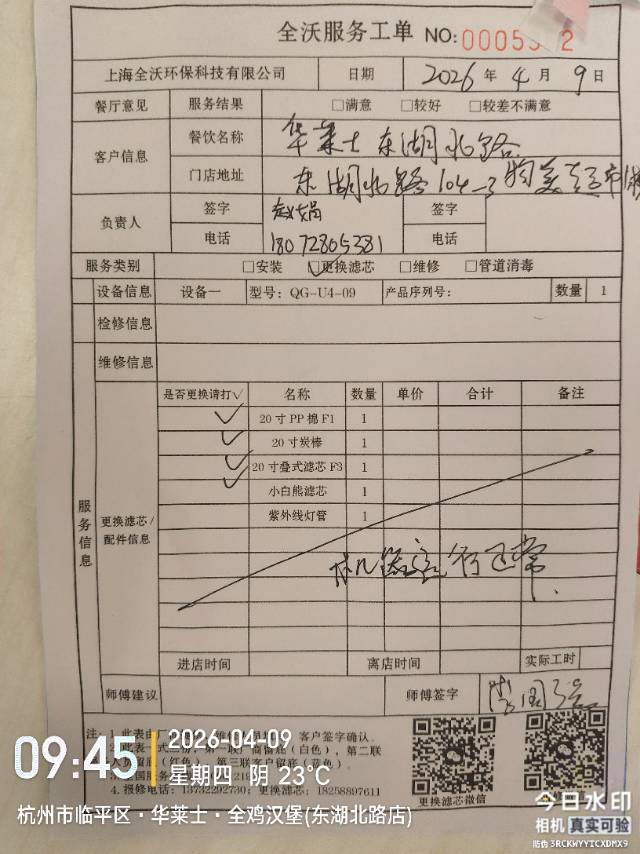 全沃服务工单 NO:
上海全沃环保科技有限公司 日期 2026年4月9日
餐厅意见 服务结果 □满意 □较好 □较差不满意
客户信息 餐饮名称 华莱士东湖北路
门店地址 东湖北路104-3
负责人 签字 签字
电话 18072805381 电话
服务类别 □安装 ☑更换滤芯 □维修 □管道消毒
设备信息 设备一 型号：QG-U4-09 产品序列号： 数量 1
检修信息
维修信息
服务信息
更换滤芯/配件信息
是否更换请打√ 名称 数量 单价 合计 备注
√ 20寸PP棉F1 1
√ 20寸炭棒 1
√ 20寸叠式滤芯F3 1
√ 小白熊滤芯 1
紫外线灯管 1
机器运行正常.
进店时间 离店时间 实际工时
师傅建议 师傅签字
注：1.此表由 客户签字确认。
第一联 留底（白色），第二联
（红色），第三联客户留底（蓝色）。
4.报修电话：13732292730；更换滤芯：18258897611
更换滤芯微信
09:45
2026-04-09
星期四 阴 23℃
杭州市临平区·华莱士·全鸡汉堡(东湖北路店)
今日水印
相机 真实可验
防伪 3RCKWYYTCXDMX9